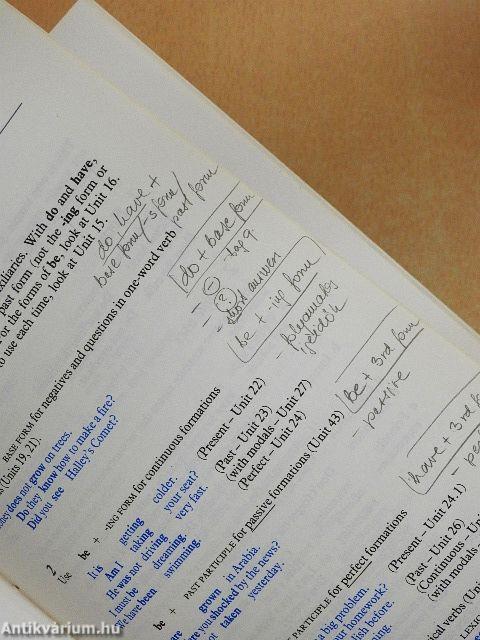 xiliaries. With do and have,
past form (not the -ing form or
or the forms of be, look at Unit 16.
to use each time, look at Unit 15.
do have +
base form/-s form/
past form
BASE FORM for negatives and questions in one-word verb
(Units 19, 21).
does not grow on trees.
Do they know how to make a fire?
Did you see Halley's Comet?
do + base form
- tag q.
- short answer
be + -ing form
- folyamatos
be + 3rd form
have + 3rd form
2
Use be + -ING FORM for continuous formations
It is getting colder. (Present – Unit 22)
Am I taking your seat?
He was not driving very fast. (Past – Unit 23)
I must be dreaming. (with modals – Unit 27)
We have been swimming. (Perfect – Unit 24)
be + PAST PARTICIPLE for passive formations (Unit 43)
grown in Arabia.
you shocked by the news?
not taken yesterday.
PARTICIPLE for perfect formations
big problem. (Present – Unit 24.1)
homework? (Past – Unit 26)
before. (Continuous – Un
ning. (with modals
Antikvárium.hu